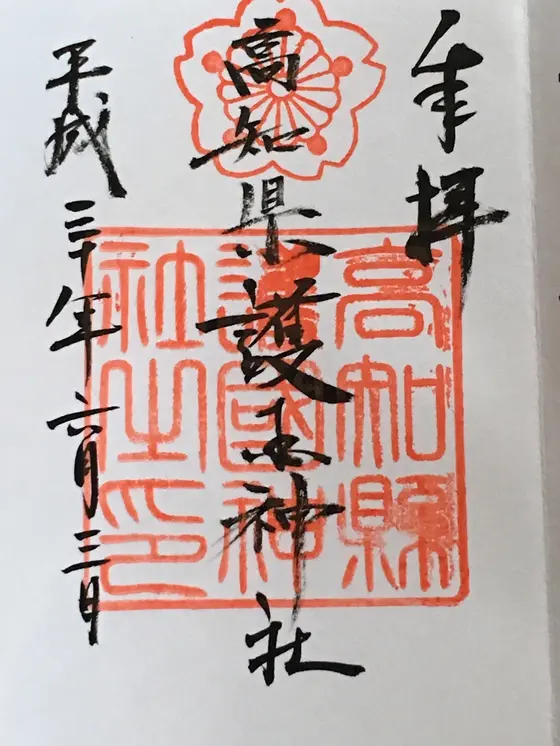 奉拝
高知県護国神社
平成三十年六月三日
高知縣
護國神
社之印